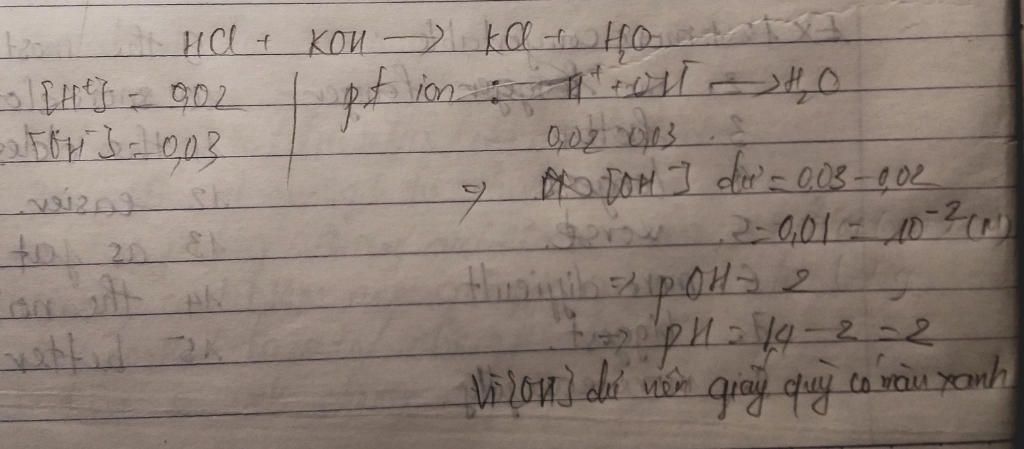 HCl + KOH → KCl + H₂O
[H⁺] = 0,02 | pt ion : H⁺ + OH⁻ → H₂O
[OH⁻] = 0,03
0,02 0,03
⇒ [OH⁻] dư = 0,03 - 0,02
= 0,01 = 10⁻² (M)
⇒ pOH = 2
⇒ pH = 14 - 2 = 2
Vì [OH] dư nên giấy quỳ có màu xanh